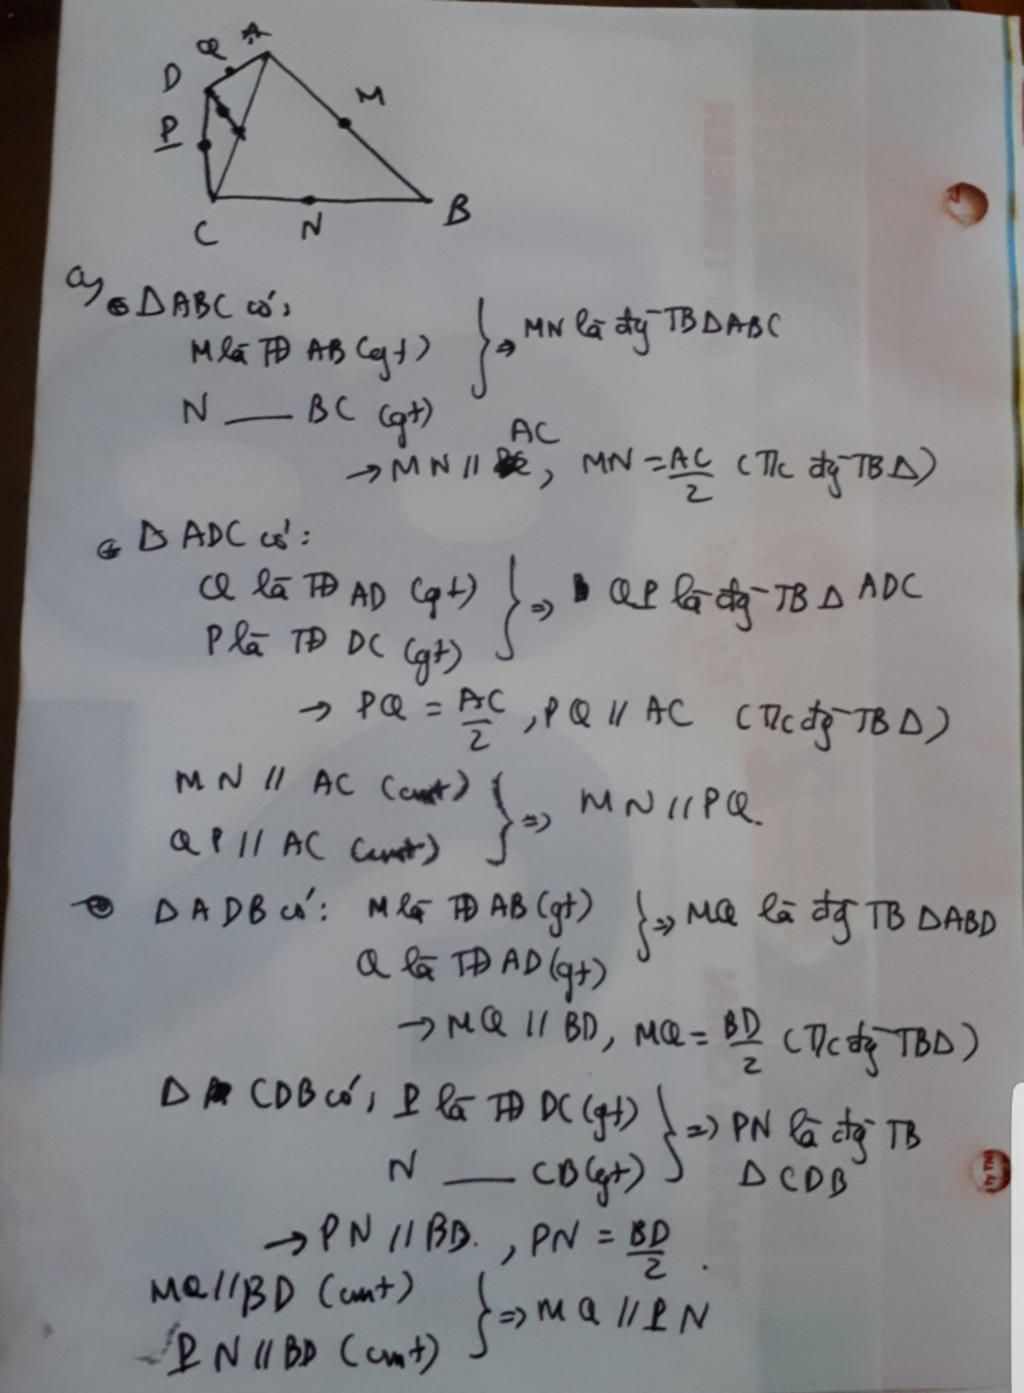 Q A
D
M
P
C N B
a, ΔABC có:
M là TĐ AB (gt)
N — BC (gt)
} ⇒ MN là đg TBΔABC
→ MN // AC, MN = AC/2 (T/c đg TBΔ)
Δ ADC có:
Q là TĐ AD (gt)
P là TĐ DC (gt)
} ⇒ QP là đg TBΔ ADC
→ PQ = AC/2, PQ // AC (T/c đg TBΔ)
MN // AC (cmt)
QP // AC (cmt)
} ⇒ MN // PQ.
Δ ADB có: M là TĐ AB (gt)
Q là TĐ AD (gt)
} ⇒ MQ là đg TB ΔABD
→ MQ // BD, MQ = BD/2 (T/c đg TBΔ)
Δ CDB có: P là TĐ DC (gt)
N — CB (gt)
} ⇒ PN là đg TB
Δ CDB
→ PN // BD., PN = BD/2.
MQ // BD (cmt)
PN // BD (cmt)
} ⇒ MQ // PN